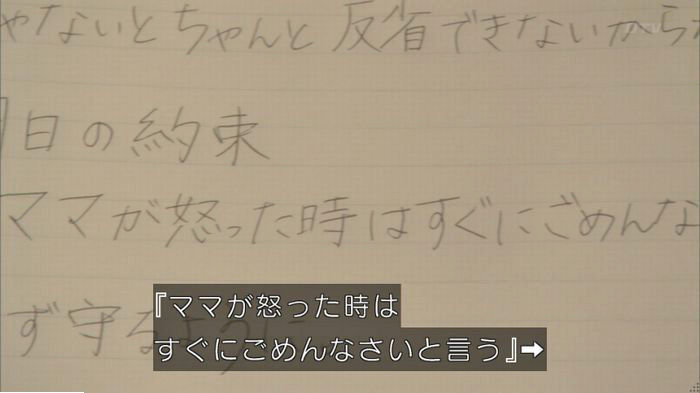 ゃないとちゃんと反省できないから
日の約束
ママが怒った時はすぐにごめんな
ず守るように
『ママが怒った時は
すぐにごめんなさいと言う』➡